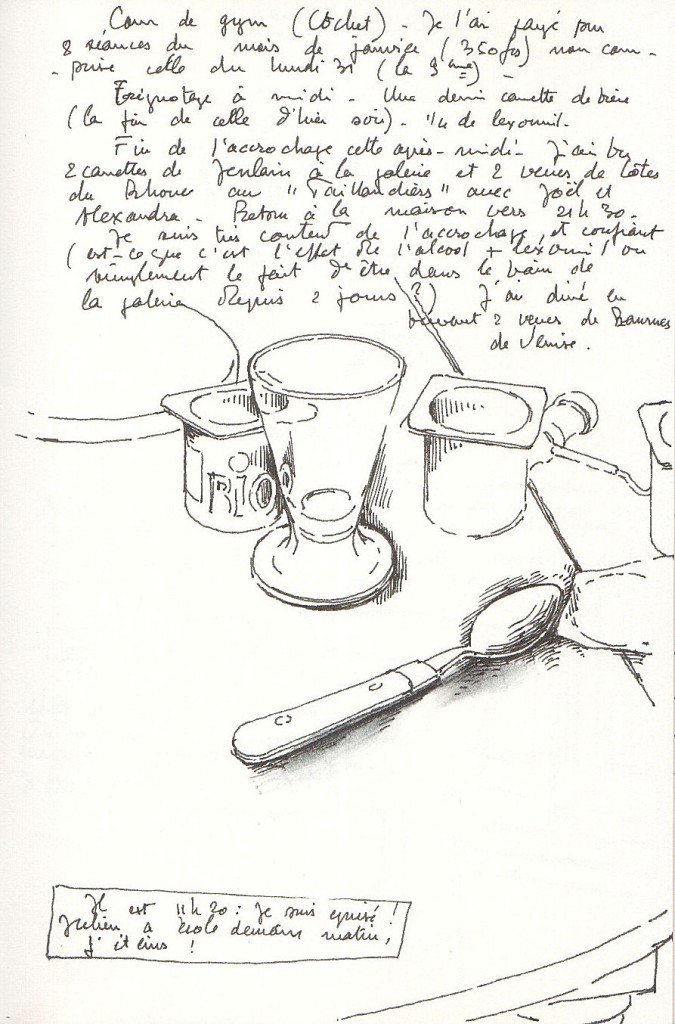 Cours de gym (Cochet) - Je l'ai payé pour
8 séances du mois de janvier (350 frs) non com-
-prise celle du lundi 31 (la 9ème) -
Grignotage à midi - Une demi canette de bière
(la fin de celle d'hier soir) - 1/4 de lexomil -
Fin de l'accrochage cette après-midi - J'ai bu
2 canettes de Jenlain à la galerie et 2 verres de Côtes
du Rhône au "Taillandiers" avec Joël et
Alexandra - Retour à la maison vers 21h30 -
Je suis très content de l'accrochage, et confiant
(est-ce que c'est l'effet de l'alcool + lexomil ou
simplement le fait d'être dans le bain de
la galerie depuis 2 jours ?) J'ai dîné en
buvant 2 verres de Baumes
de Venise.
BIO
Il est 11h20 : Je suis épuisé !
Julien a école demain matin,
J'éteins !